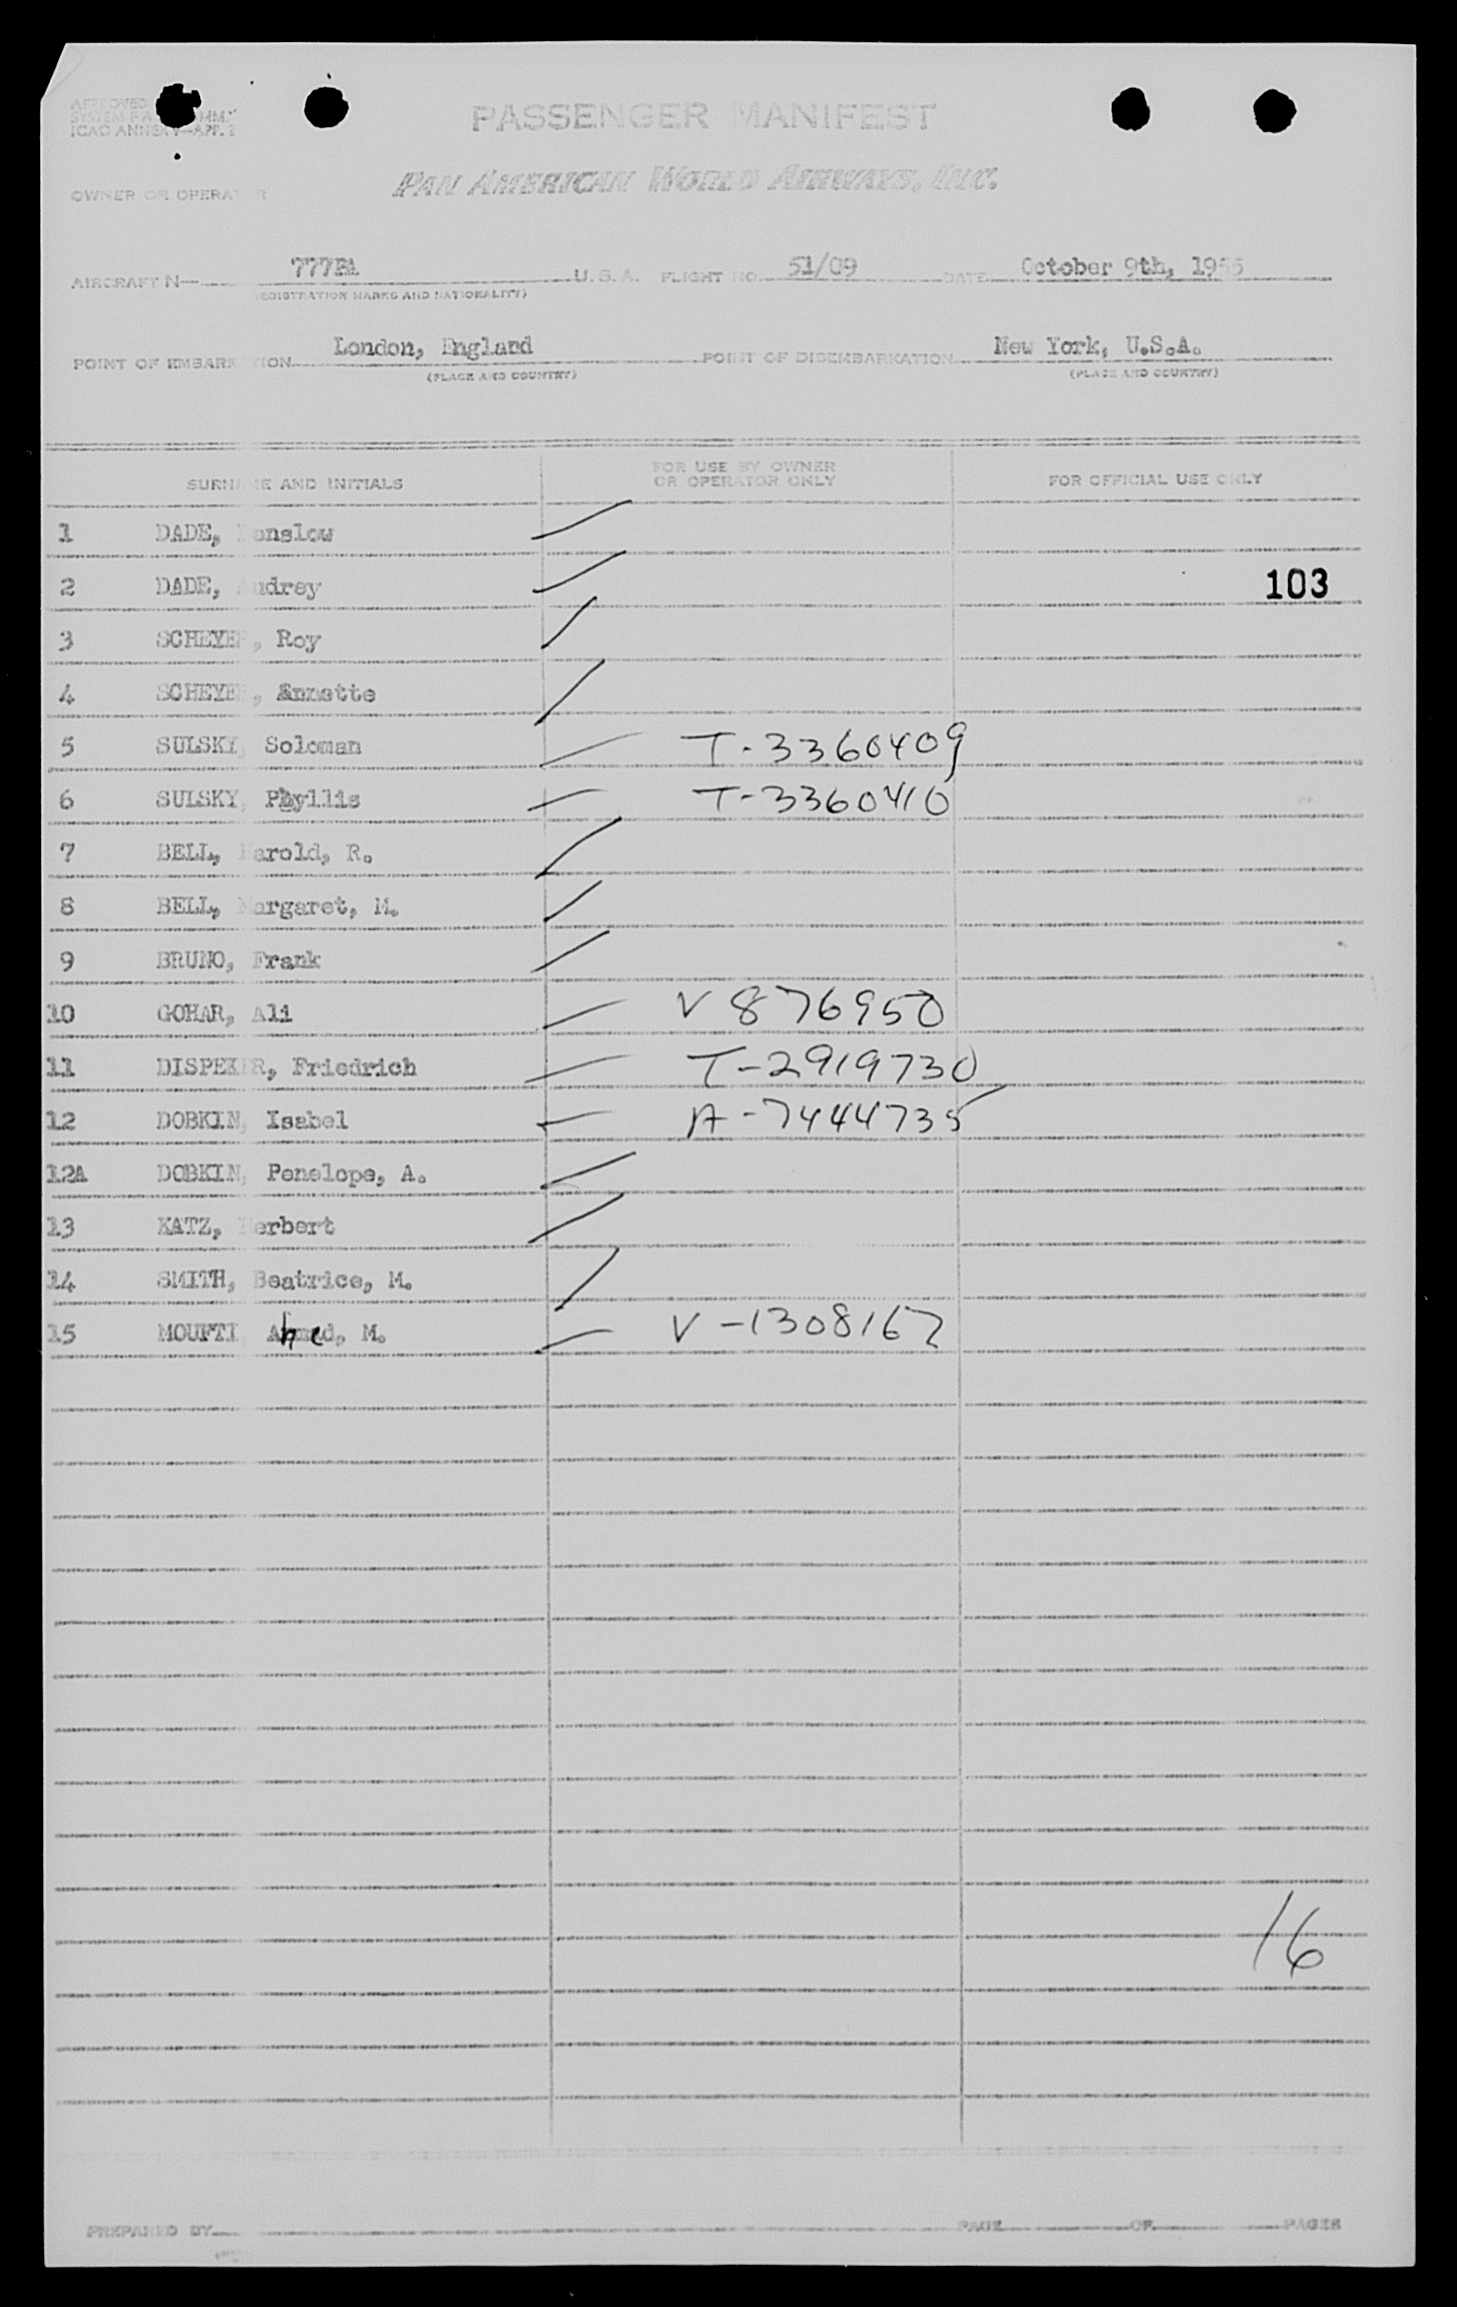 APPROVED
ICAO ANNEX 9—APP. 2
PASSENGER MANIFEST
OWNER OR OPERATOR PAN AMERICAN WORLD AIRWAYS, INC.
AIRCRAFT N— 777PA U. S. A. FLIGHT NO. 51/09 DATE October 9th, 1955
(REGISTRATION MARKS AND NATIONALITY)
POINT OF EMBARKATION London, England POINT OF DISEMBARKATION New York, U.S.A.
(PLACE AND COUNTRY) (PLACE AND COUNTRY)
SURNAME AND INITIALS FOR USE BY OWNER OR OPERATOR ONLY FOR OFFICIAL USE ONLY
1 DADE, onslow
2 DADE, Audrey 103
3 SCHEYER, Roy
4 SCHEYER, Annette
5 SULSKY, Soloman T-3360409
6 SULSKY, Phyllis T-3360410
7 BELL, Harold, R.
8 BELL, Margaret, M.
9 BRUNO, Frank
10 GOHAR, Ali V 876950
11 DISPEKER, Friedrich T-2919730
12 DOBKIN, Isabel A-7444735
12A DOBKIN, Penelope, A.
13 KATZ, Herbert
14 SMITH, Beatrice, M.
15 MOUFTI, Ahmed, M. V-1308167
16
PREPARED BY PAGE OF PAGES